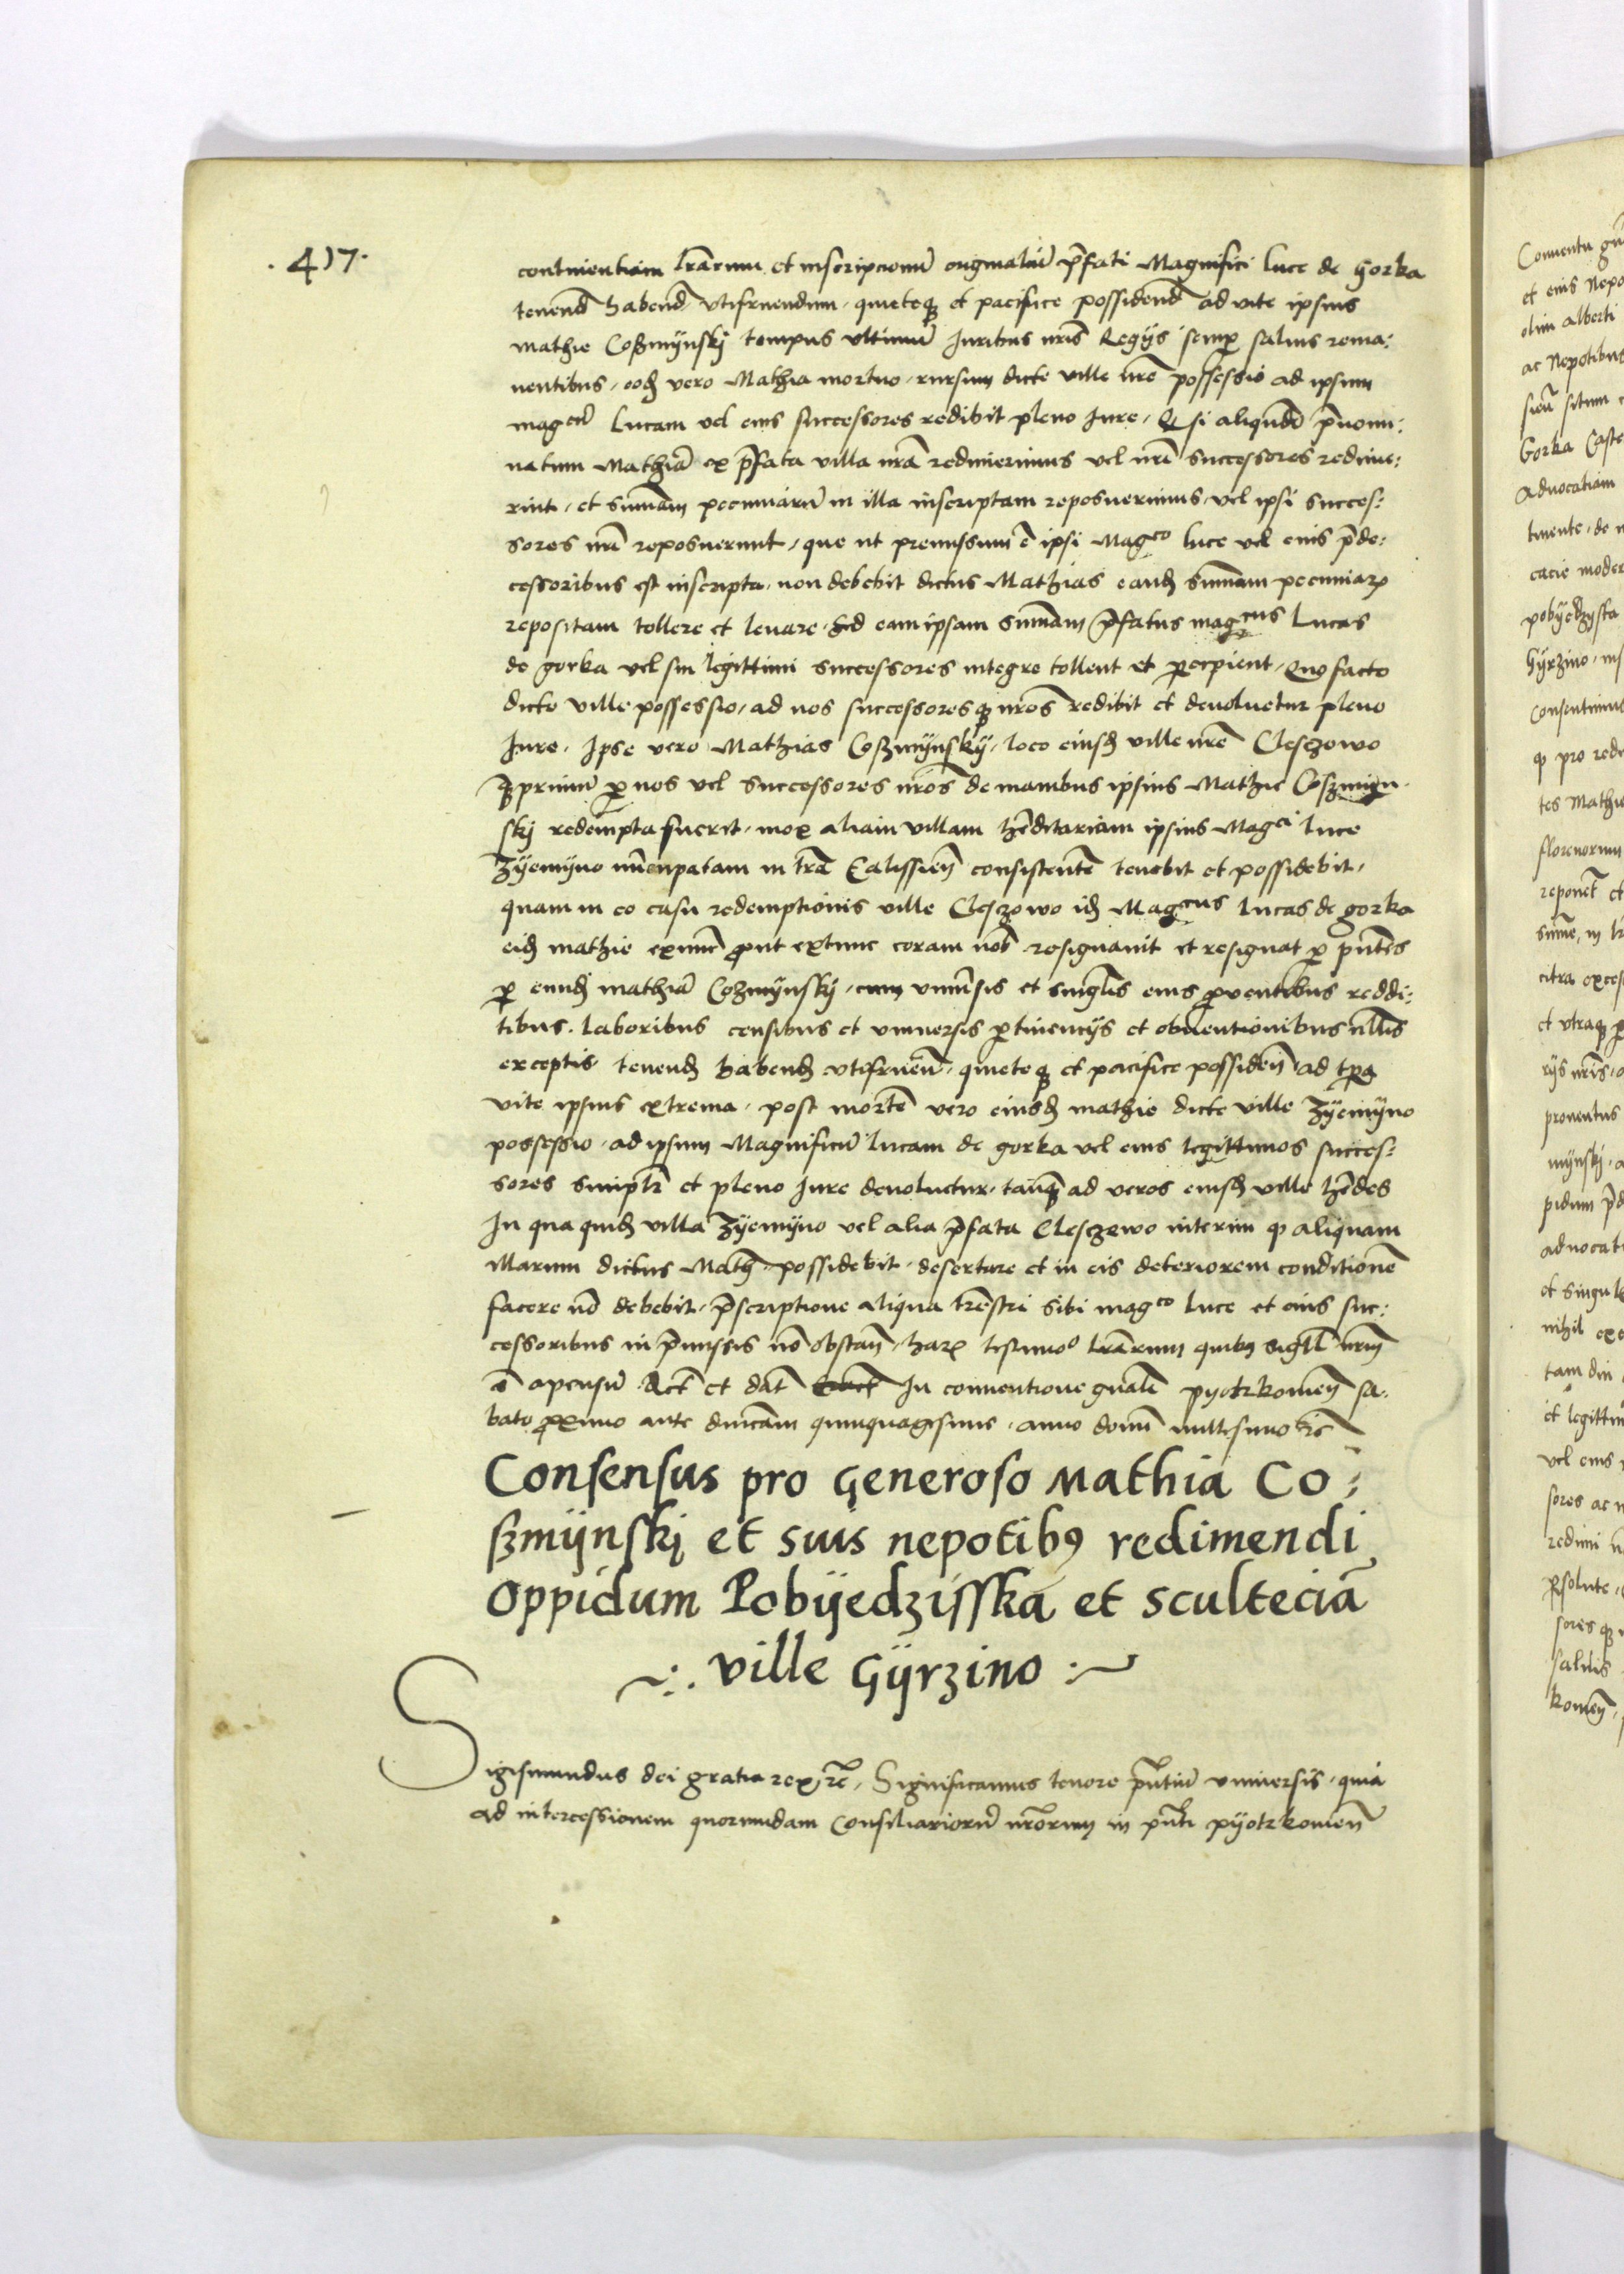 .417.
continentiam lr̄arum et inscripcionū originaliū p̄fati Magnifici Luce de Gorka
tenend̄ habend̄ vtifruendum, quieteq3 et pacifice possidend̄ ad vite ipsius
Mathie Coßmÿnskÿ tempus vltimū Juribus nr̄is Regÿs semp saluis rema:
nentibus, eod vero Mathia mortuo, rursum dicte ville nr̄e possessio ad ipsum
magcū Lucam vel eius successores redibit pleno Jure, Q si aliqn̄do p̄nomi:
natum Mathiā ex p̄fata villa nr̄a redimerimus vel nr̄i successores redime:
rint, et sum̄am pecuniarū in illa inscriptam reposuerimus, vel ipsi succes:
sores nr̄i reposuerunt, que ut premissum ē ipsi Magco Luce vel eius p̄de:
cessoribus est inscripta, non debebit dictus Mathias eand sum̄am pecuniar
repositam tollere et leuare, Sed eam ipsam sum̄am p̄fatus magcus Lucas
de gorka vel sui legittimi successores integre tollent et percipient, Quo facto
dicte ville possessio, ad nos successoresq3 nr̄os redibit et deuoluetur pleno
Jure, Ipse vero Mathias Coßmÿnskÿ, loco eiusd ville nr̄e Cleszowo
q̄primū p nos vel successores nr̄os de manibus ipsius Mathie Coszmijn
skÿ redempta fuerit, mox aliam villam hēditariam ipsius Magci Luce
Zÿemÿno nūcupatam in tr̄a Calissien̄ consistentē tenebit et possidebit,
quam in eo casu redemptionis ville Cleszowo id Magcus Lucas de gorka
eid mathie exnunc prout extunc coram nob resignauit et resignat p pn̄tes
p eund mathiā Coßmÿnskÿ, cum vniuersis et singlis eius prouentibus reddi:
tibus, laboribus censibus et vniuersis ptinencÿs et obuentionibus nllis
exceptis, tenend habend vtifruen̄, quieteq3 et pacifice possiden̄ ad tpa
vite ipsius extrema, post mortē vero eiusd mathie dicte ville Zÿemÿno
possessio, ad ipsum Magnificū Lucam de gorka vel eius legittimos succes:
sores simplr et pleno Jure deuoluetur, tanq̄ ad veros eiusd ville hēdes
In qua quid villa Zÿemÿno vel alia p̄fata Cleszewo interim q aliquam
Illarum dictus Math possidebit, desertare et in eis deteriorem conditionē
facere nō debebit, p̄scriptione aliqua trestri sibi magco Luce et eius suc:
cessoribus in p̄missis nō obstan̄, har testimoo lr̄arum quibus sigll nrm
ē apensū Act et dat In conuentione gnali pyotrkomen̄ sa:
bato proximo ante dnicam quinquagesime, anno domī millesimo etc
Consensus pro Generoso Mathia Co:
ßmijnskj et suis nepotib9 redimendi
Oppidum Pobÿedzisska et scultecia̅
ville Gÿrzino
Sigismundus dei gratia rex etc, Significamus tenore pn̄tiū vniuersis, quia
ad intercessionem quorundam Consiliariorū nr̄orum in pn̄ti pyotrkomen̄
Conuentu
et eius Nepo
olim alberti
ac Nepotibus
sien̄ situm
Gorka Caste
aduocatiam
tinente, de
cacie moder
pobÿedzyska
Gÿrzino, ins
Consentimus
q pro rede
tes Mathie
florenorum
reponet et
citra exces
et vtraq3
rÿs nr̄is,
prouentus
mÿnskÿ,
pidum
aduocati
et singul
nihil exc
tam diu
et legittim
vel eius
sores ac
redimi
psolute,
soresq3
saluis
komen̄,